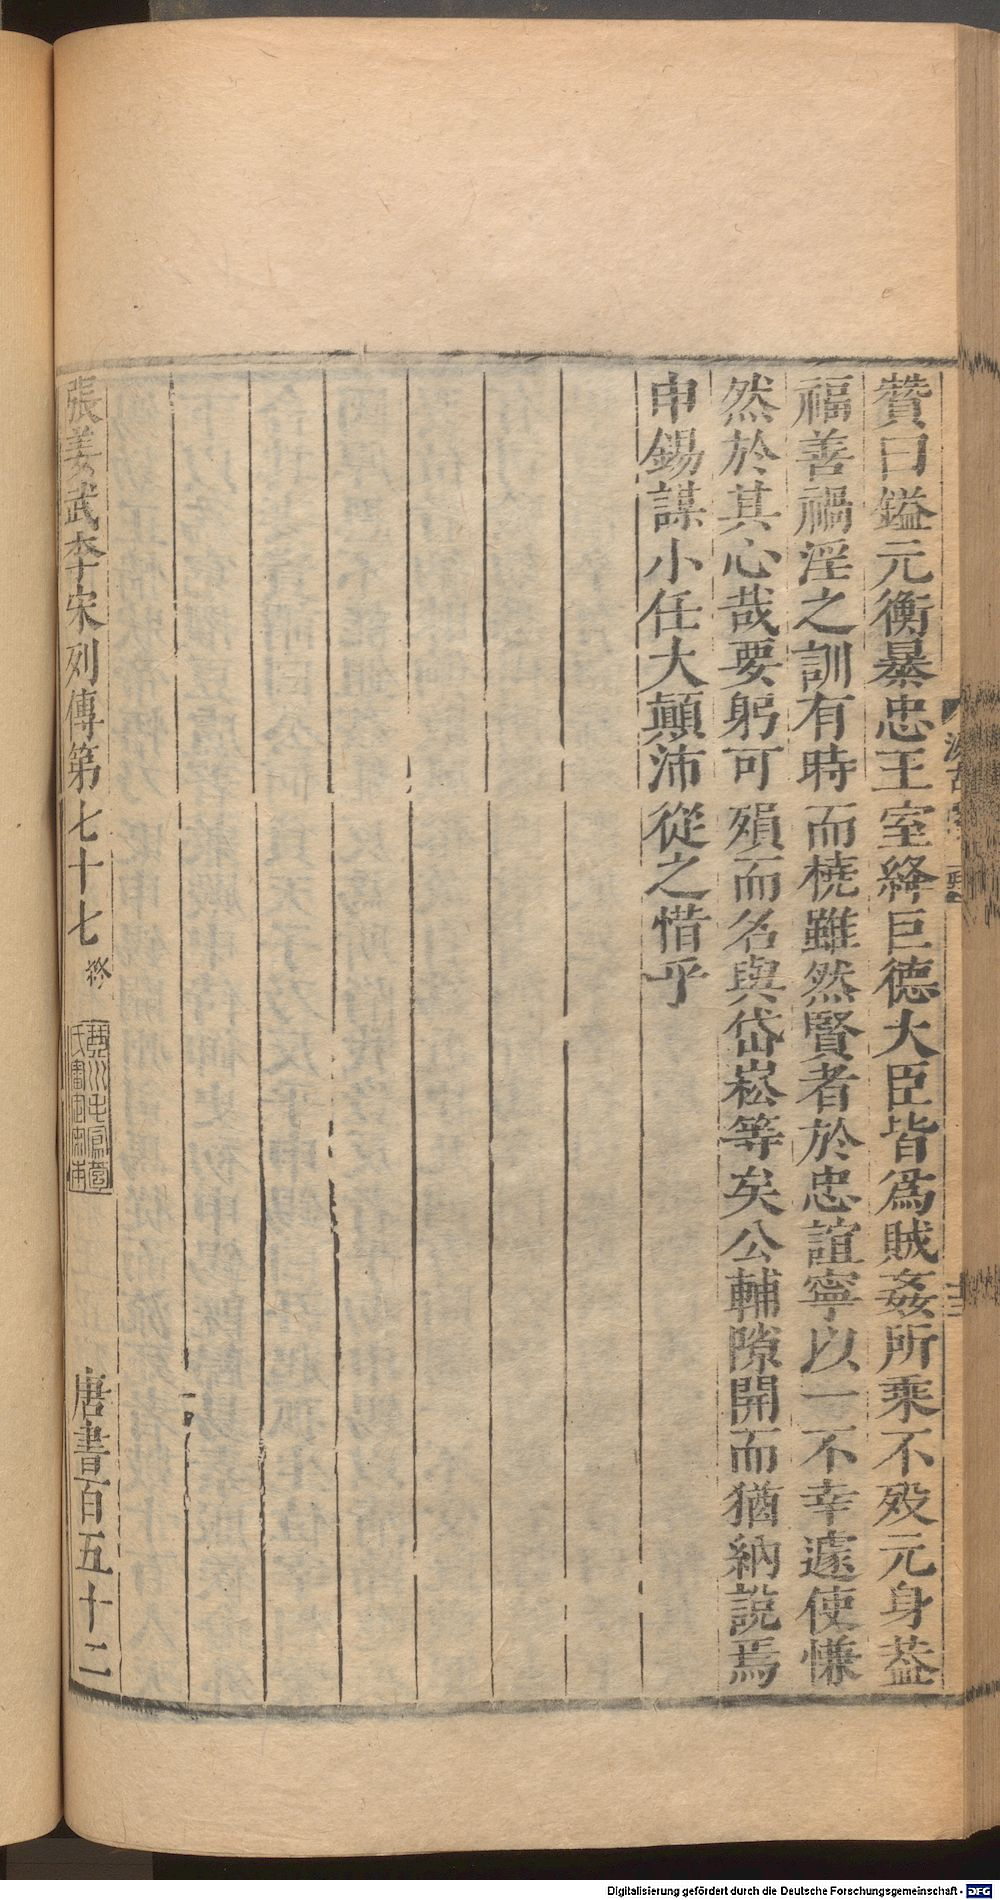 贊曰鎰元衡暴忠王室絳巨德大臣皆爲賊姦所乘不歿元身葢
福善禍淫之訓有時而橈雖然賢者於忠誼寧以一不幸遽使慊
然於其心哉要躬可殞而名與岱崧等矣公輔隙開而猶納說焉
申錫謀小任大顛沛從之惜乎
張姜武李宋列傳第七十七 終
琴川毛鳳苞氏審定宋本
唐書百五十二
Digitalisierung gefördert durch die Deutsche Forschungsgemeinschaft - DFG